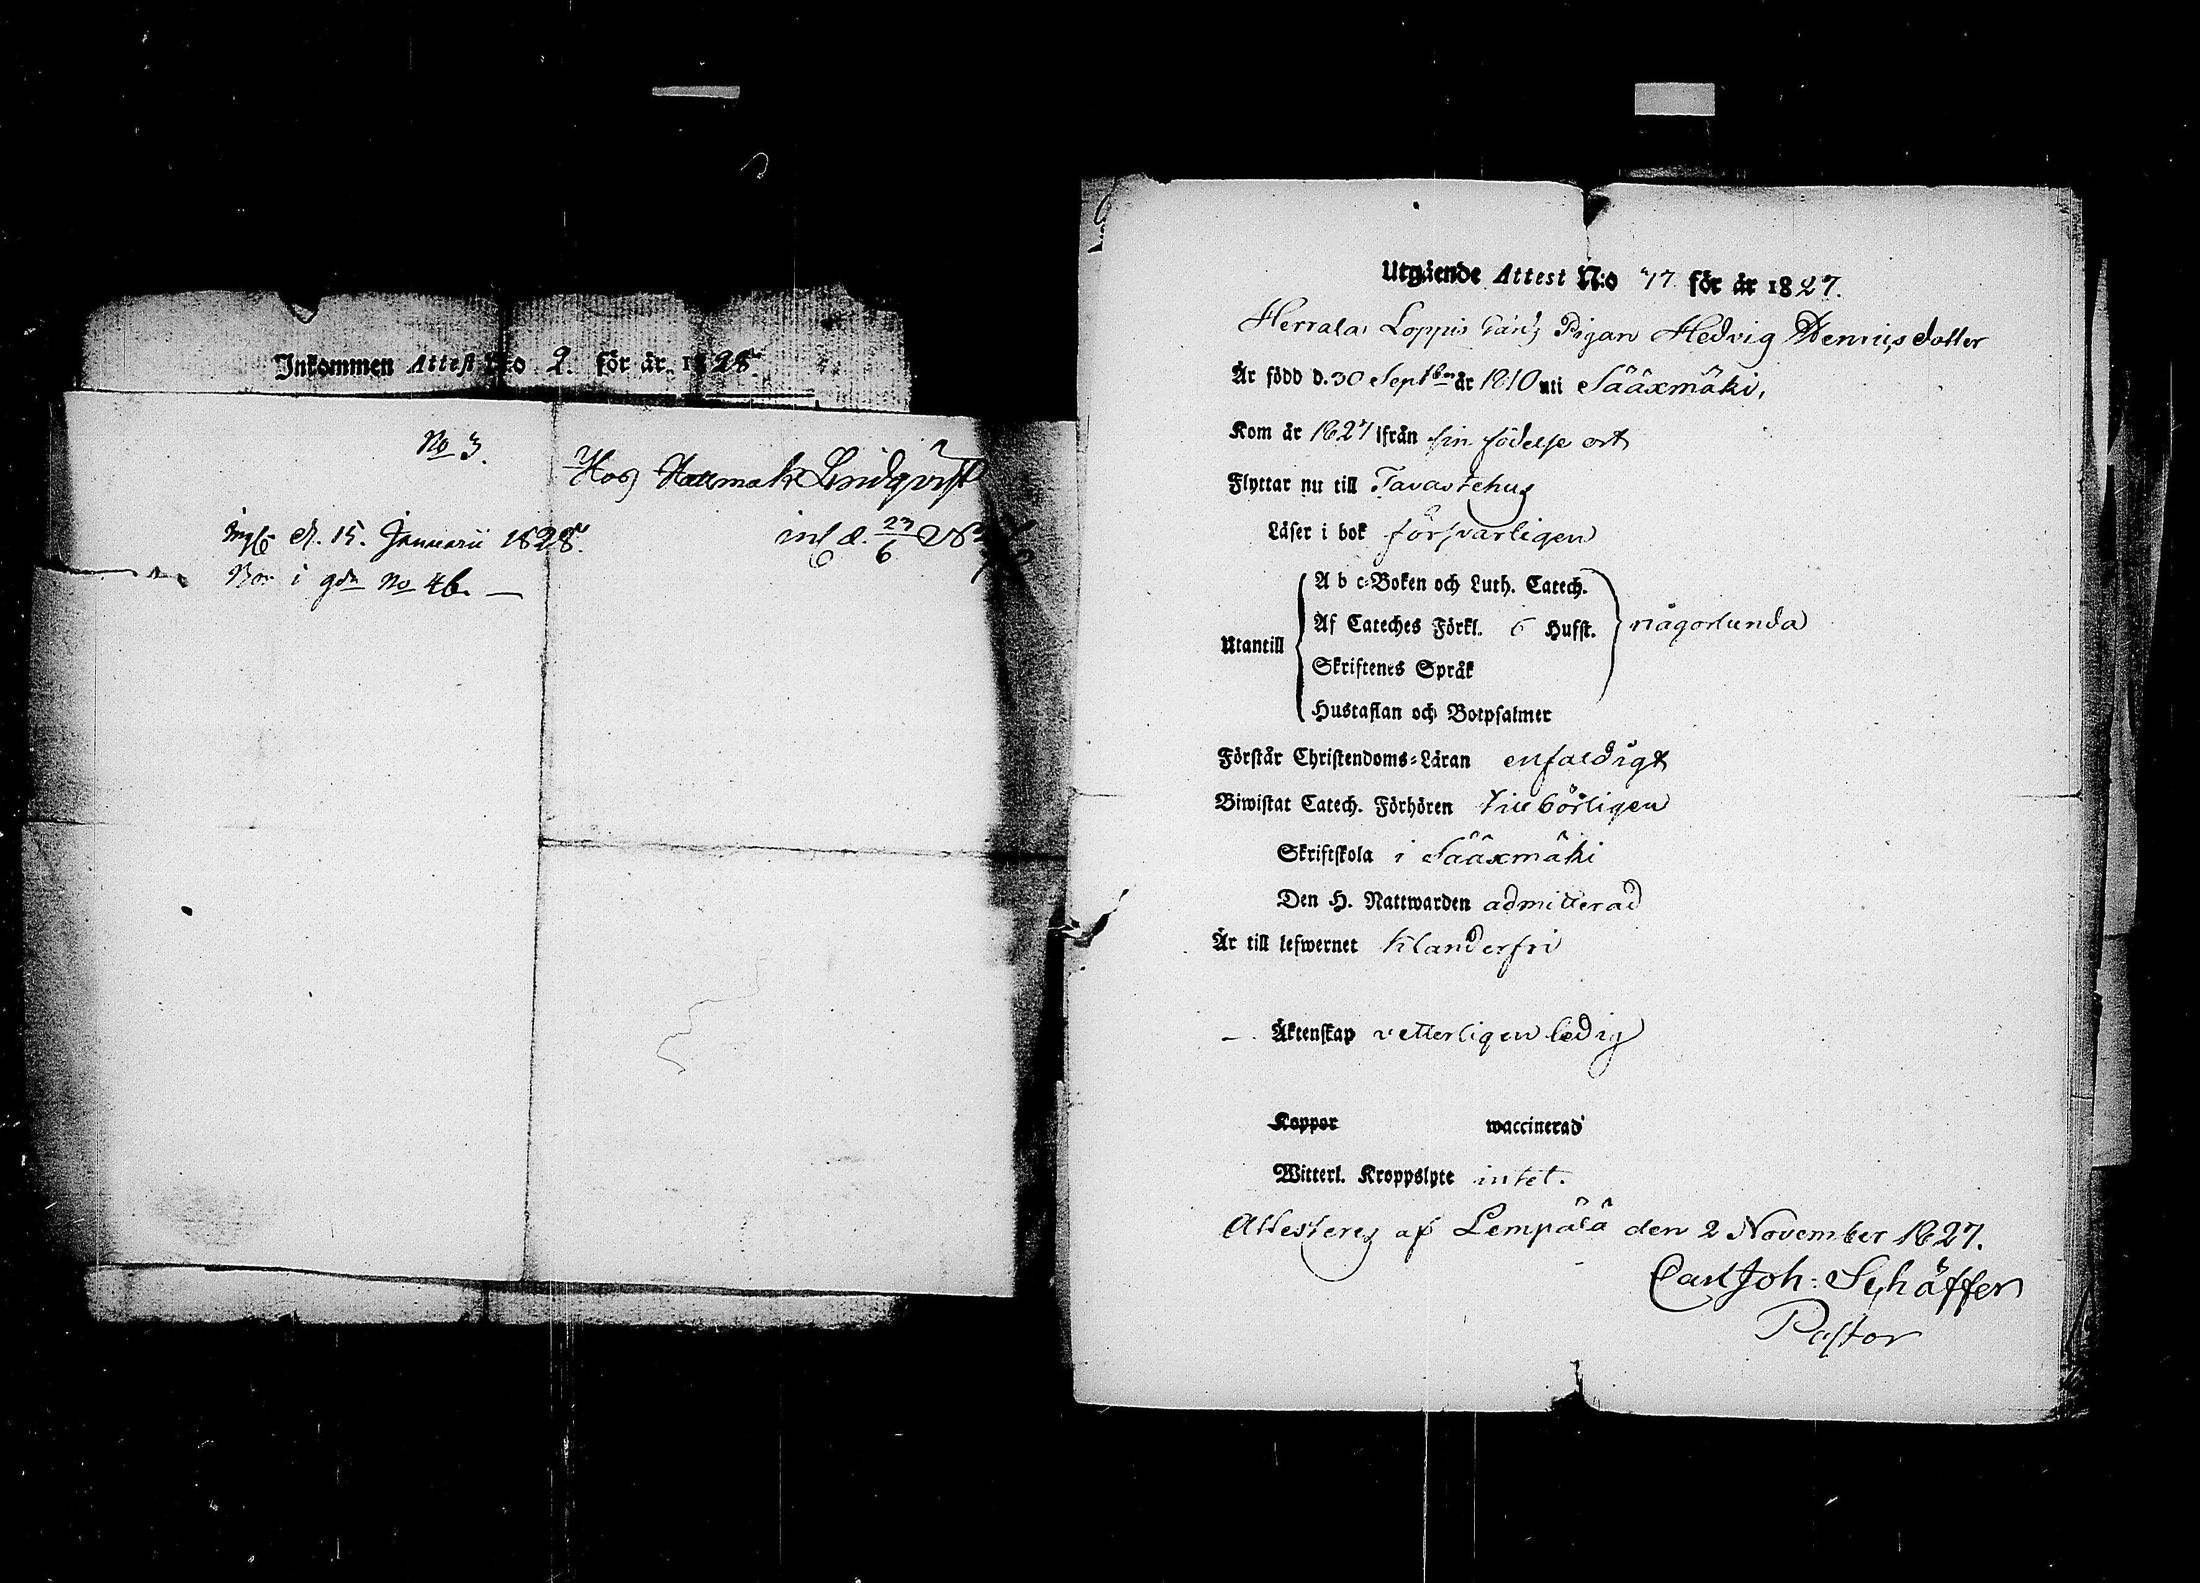 Inkommen Attest N:o 2. för år 1828.
No 3.
Hos Hattmak Lindqvist
ingf d. 15. Januarii 1828.
inl d. 23/6
Bor i gdn No 46. —
Utgående Attest N:o 77 för år 1827.
Herrala, Loppis Pigan Hedvig Dennisdotter
Är född d. 30 Septbr år 1810 uti Sääxmäki,
Kom år 1827 ifrån sin födelse ort
Flyttar nu till Tavastehus
Läser i bok försvarligen
Utantill
A b c-Boken och Luth. Catech.
Af Cateches Förkl. 6 Hufst.
någorlunda
Skriftenes Språk
Hustaflan och Botpsalmer
Förstår Christendoms-Läran enfaldigt
Biwistat Catech. Förhören tillbörligen
Skriftskola i Sääxmäki
Den H. Nattwarden admitterad
Är till lefwernet klanderfri
— Äktenskap vetterligen ledig
Koppor waccinerad
Witterl. Kroppslyte intet.
Attesteres af Lempälä den 2 November 1827.
Carl Joh: Schäffer
Pastor